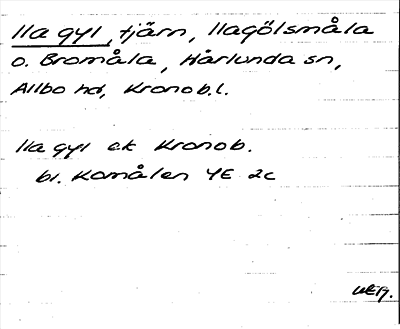 Illa gyl, tjärn, Illagölsmåla
o. Bromåla, Hårlunda sn,
Allbo hd, Kronob.l.
Illa gyl ek Kronob.
bl. Komålen 4E 2c